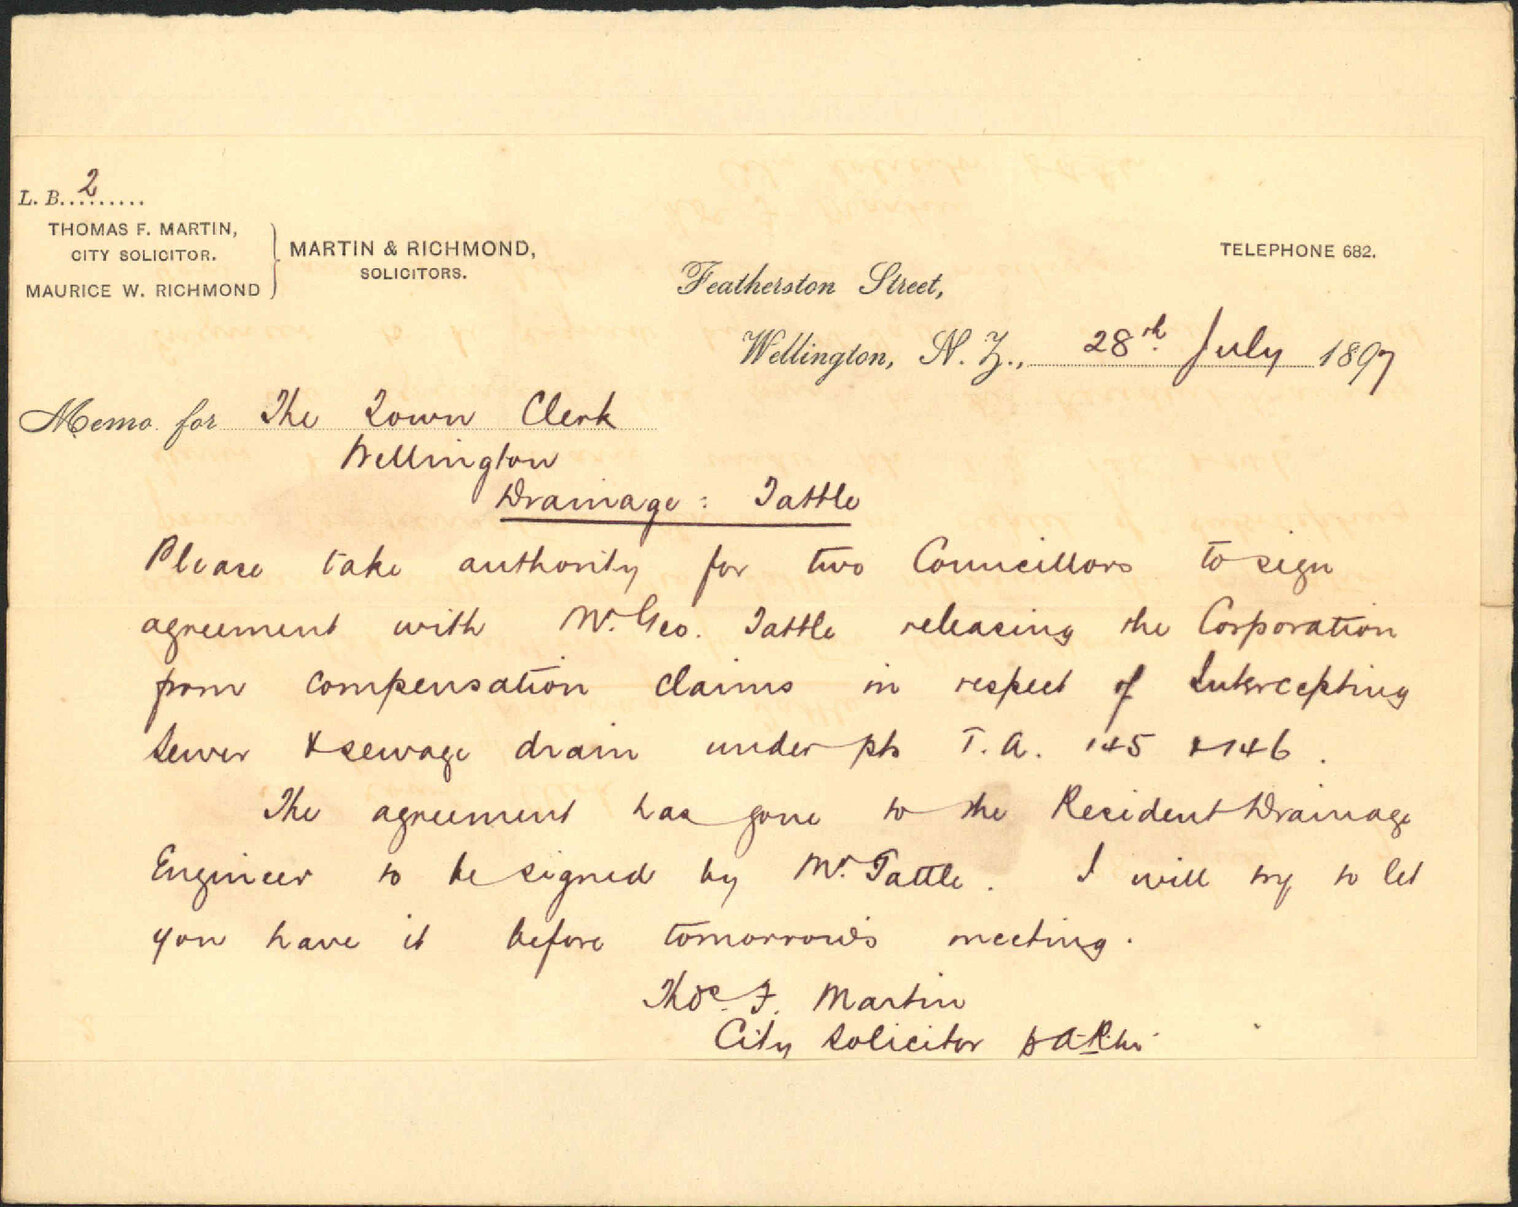 L. B. 2
THOMAS F. MARTIN,
CITY SOLICITOR.
MAURICE W. RICHMOND
MARTIN & RICHMOND,
SOLICITORS.
TELEPHONE 682.
Featherston Street,
Wellington, N. Z., 28th July 1897
Memo for The Town Clerk
Wellington
Drainage: Tattle
Please take authority for two Councillors to sign
agreement with Mr. Geo. Tattle releasing the Corporation
from compensation claims in respect of Intercepting
Sewer & sewage drain under pts T. A. 145 & 146.
The agreement has gone to the Resident Drainage
Engineer to be signed by Mr. Tattle. I will try to let
you have it before tomorrow's meeting.
Thos. F. Martin
City Solicitor